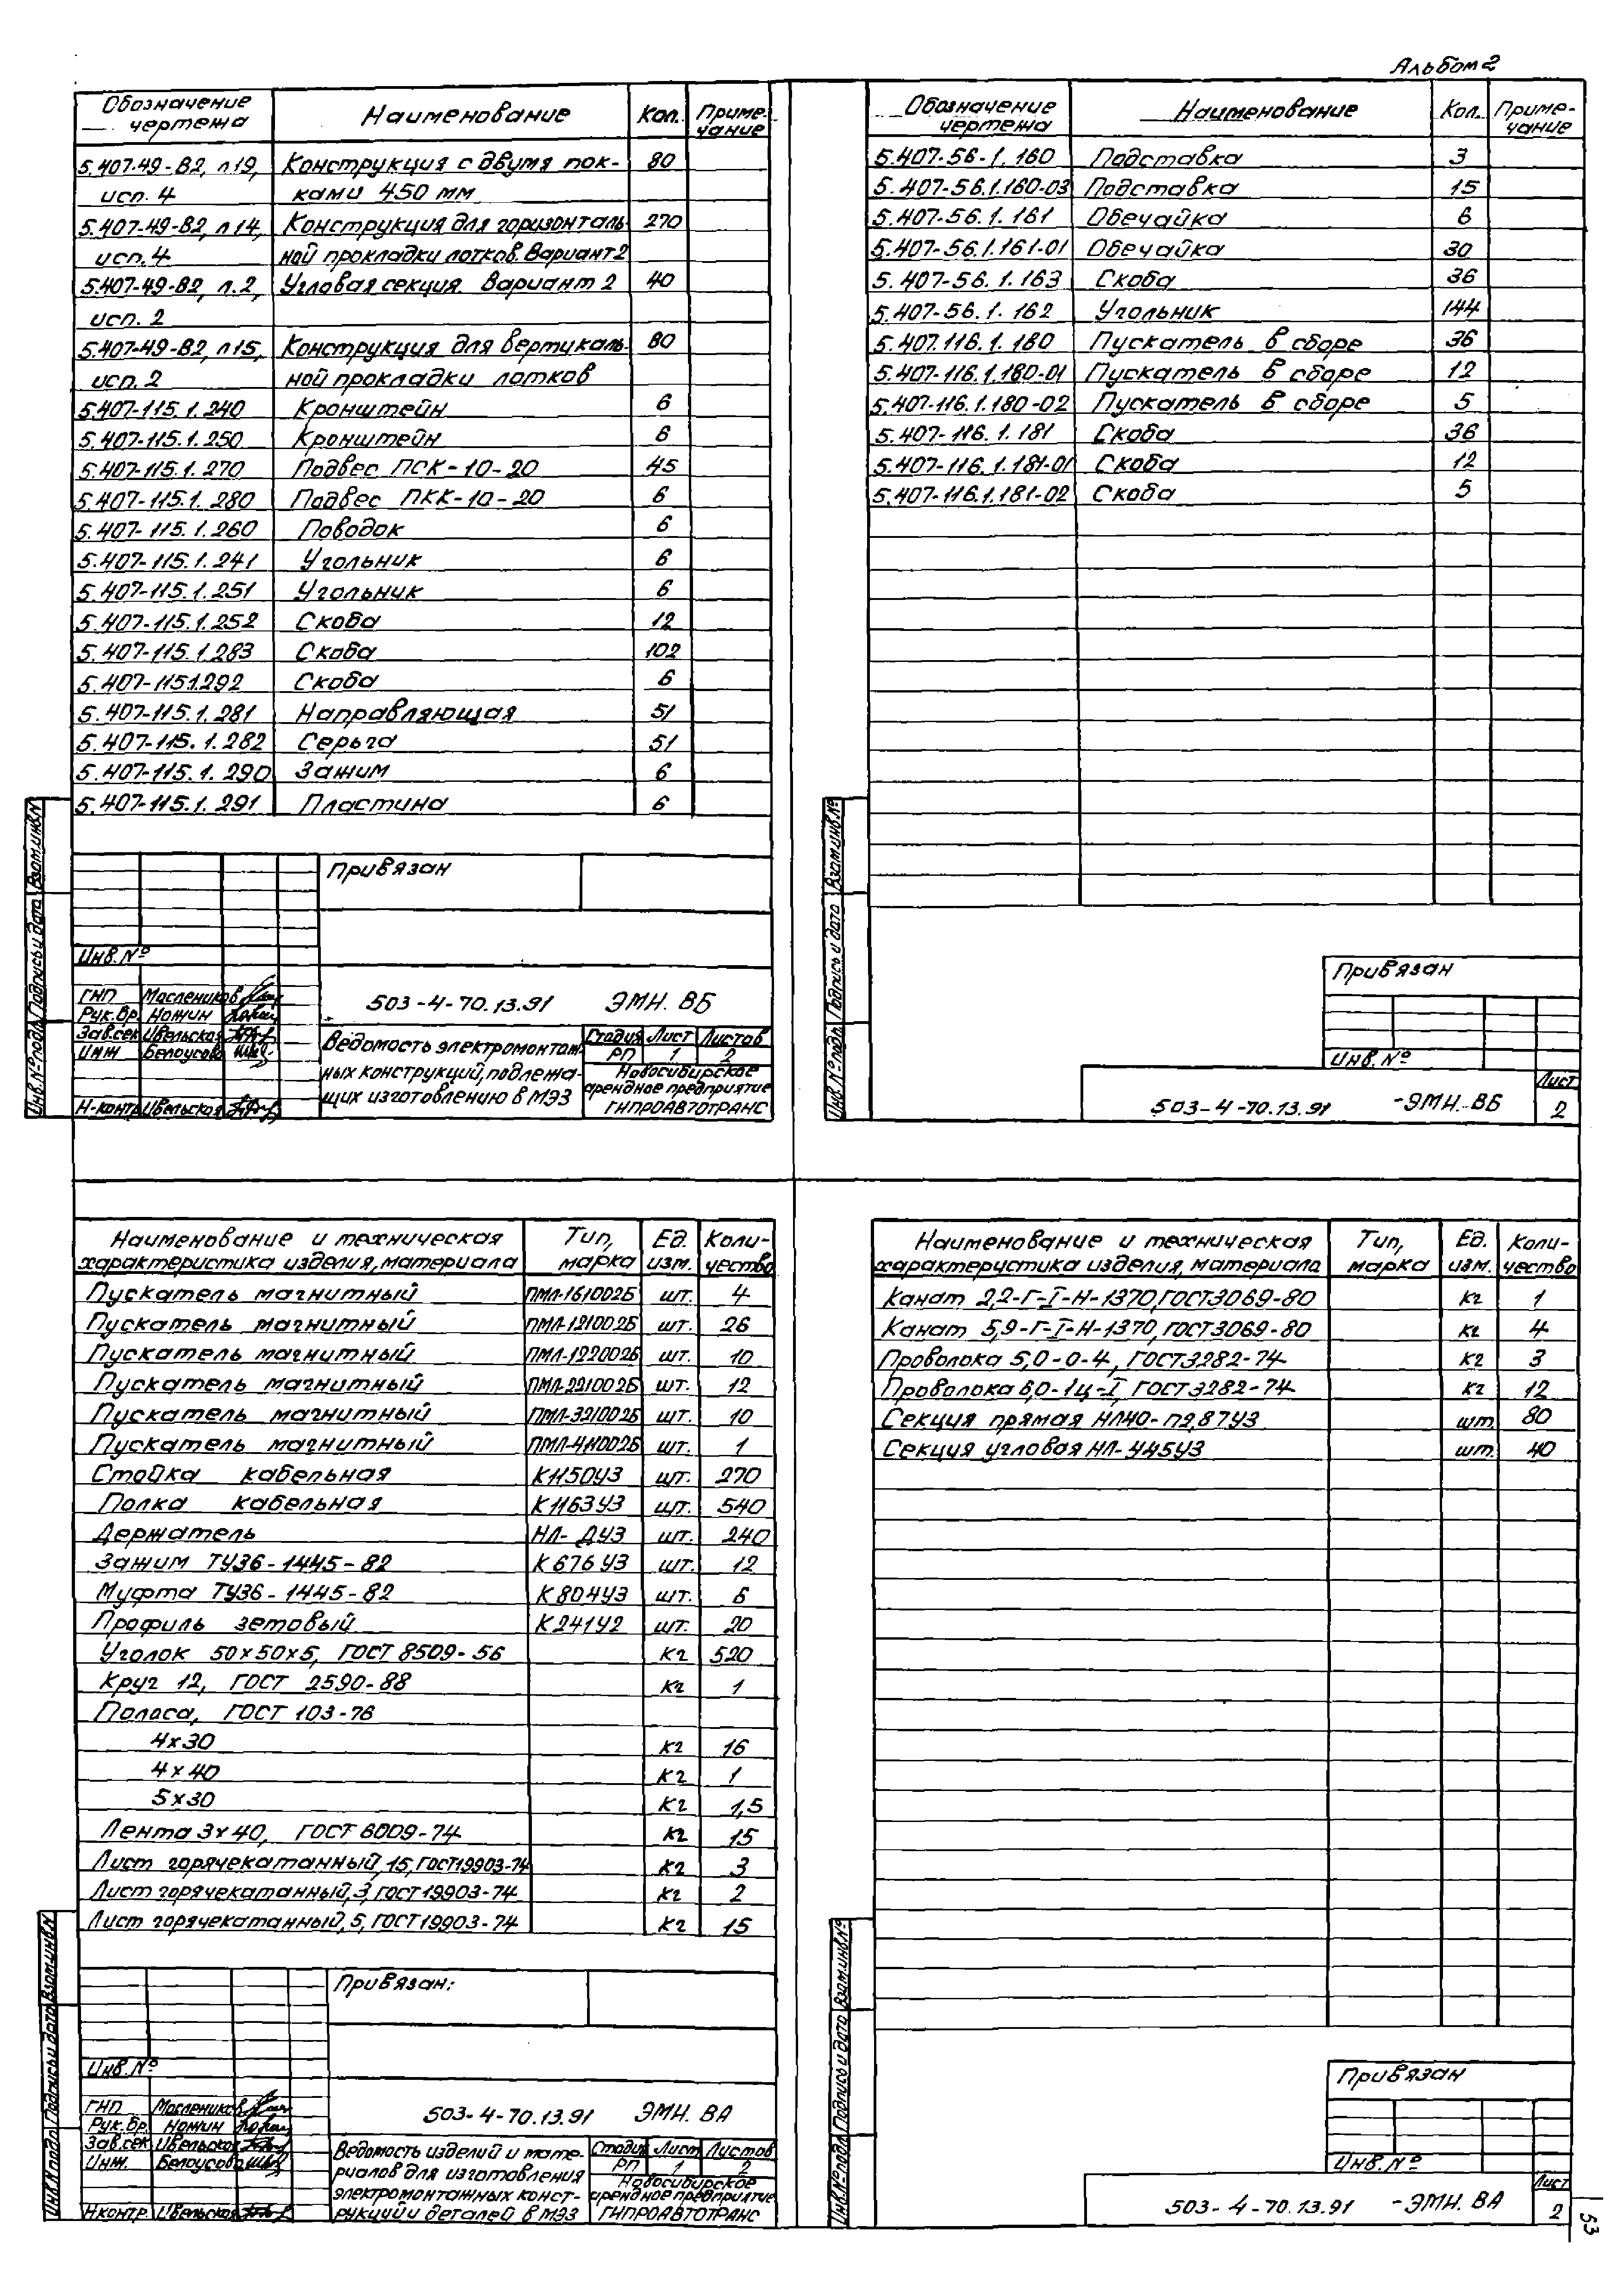 Альбом 2
Обозначение чертежа Наименование Кол. Примечание
5.407-49-В2, л19, Конструкция с двумя пол- 80
исп. 4 ками 450 мм
5.407-49-В2, л14, Конструкция для горизонталь- 270
исп. 4 ной прокладки лотков. Вариант 2
5.407-49-В2, л.2, Угловая секция Вариант 2 40
исп. 2
5.407-49-В2, л15, Конструкция для вертикаль- 80
исп. 2 ной прокладки лотков
5.407-115.1.240 Кронштейн 6
5.407-115.1.250 Кронштейн 6
5.407-115.1.270 Подвес ПСК-10-20 45
5.407-115.1.280 Подвес ПКК-10-20 6
5.407-115.1.260 Поводок 6
5.407-115.1.241 Угольник 6
5.407-115.1.251 Угольник 6
5.407-115.1.252 Скоба 12
5.407-115.1.283 Скоба 102
5.407-115.1.292 Скоба 6
5.407-115.1.281 Направляющая 51
5.407-115.1.282 Серьга 51
5.407-115.1.290 Зажим 6
5.407-115.1.291 Пластина 6
Привязан
Инв. №
ГНП Маслеников
Рук. бр. Ножин
Зав.сек. Цвельская
Инж Белоусова
Н-контр Цвельская
503-4-70.13.91 ЭМН. ВБ
Ведомость электромонтаж-
ных конструкций, подлежа-
щих изготовлению в МЭЗ
Стадия Лист Листов
РП 1 2
Новосибирское
арендное предприятие
ГИПРОАВТОТРАНС
Инв. № подл. Подпись и дата Взам.инв.N
Обозначение чертежа Наименование Кол. Примечание
5.407-56-1.160 Подставка 3
5.407-56.1.160-03 Подставка 15
5.407-56.1.161 Обечайка 6
5.407-56.1.161-01 Обечайка 30
5.407-56.1.163 Скоба 36
5.407-56.1.162 Угольник 144
5.407.116.1.180 Пускатель в сборе 36
5.407-116.1.180-01 Пускатель в сборе 12
5.407-116.1.180-02 Пускатель в сборе 5
5.407-116.1.181 Скоба 36
5.407-116.1.181-01 Скоба 12
5.407-116.1.181-02 Скоба 5
Привязан
Инв. №
503-4-70.13.91 -ЭМН. ВБ
Лист
2
Инв. № подл. Подпись и дата Взам.инв.№
Наименование и техническая характеристика изделия, материала Тип, марка Ед. изм. Количество
Пускатель магнитный ПМЛ-161002Б шт. 4
Пускатель магнитный ПМЛ-121002Б шт. 26
Пускатель магнитный ПМЛ-122002Б шт. 10
Пускатель магнитный ПМЛ-221002Б шт. 12
Пускатель магнитный ПМЛ-321002Б шт. 10
Пускатель магнитный ПМЛ-411002Б шт. 1
Стойка кабельная К1150У3 шт. 270
Полка кабельная К1163У3 шт. 540
Держатель НЛ-ДУ3 шт. 240
Зажим ТУ36-1445-82 К676У3 шт. 12
Муфта ТУ36-1445-82 К804У3 шт. 6
Профиль зетовый К241У2 шт. 20
Уголок 50х50х5, ГОСТ 8509-56 кг 520
Круг 12, ГОСТ 2590-88 кг 1
Полоса, ГОСТ 103-76
4х30 кг 16
4х40 кг 1
5х30 кг 1,5
Лента 3х40, ГОСТ 6009-74 кг 15
Лист горячекатанный, 15, ГОСТ19903-74 кг 3
Лист горячекатанный, 3, ГОСТ 19903-74 кг 2
Лист горячекатанный, 5, ГОСТ 19903-74 кг 15
Привязан:
Инв. №
ГНП Маслеников
Рук. бр. Ножин
Зав.сек. Цвельская
Инж. Белоусова
Н.контр. Цвельская
503-4-70.13.91 ЭМН. ВА
Ведомость изделий и мате-
риалов для изготовления
электромонтажных конст-
рукций и деталей в МЭЗ
Стадия Лист Листов
РП 1 2
Новосибирское
арендное предприятие
ГИПРОАВТОТРАНС
Инв. N подл. Подпись и дата Взам.инв.N
Наименование и техническая характеристика изделия, материала Тип, марка Ед. изм. Количество
Канат 2,2-Г-I-Н-1370, ГОСТ3069-80 кг 1
Канат 5,9-Г-I-Н-1370, ГОСТ3069-80 кг 4
Проволока 5,0-0-4, ГОСТ3282-74 кг 3
Проволока 6,0-1ц-I, ГОСТ3282-74 кг 12
Секция прямая НЛ40-П2,87У3 шт. 80
Секция угловая НЛ-У45У3 шт. 40
Привязан
Инв. №
503-4-70.13.91 -ЭМН. ВА
Лист
2
Инв. № подл. Подпись и дата Взам.инв.№
53